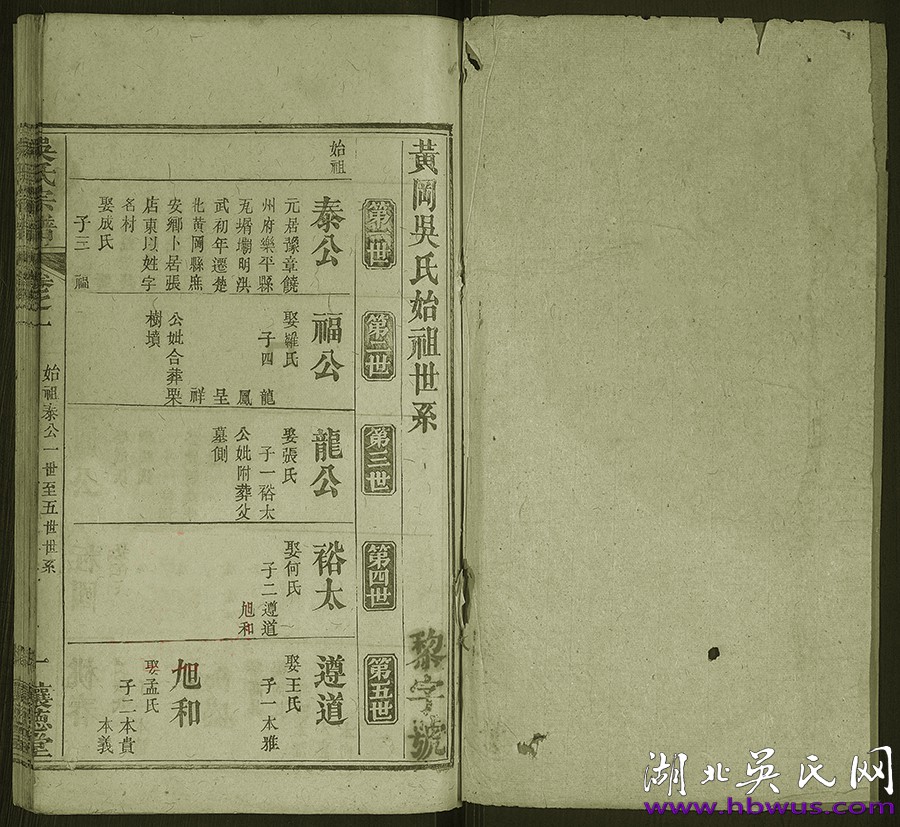 黃岡吳氏始祖世系
黎字號
第一世
第二世
第三世
第四世
第五世
始祖
泰公
元居豫章饒
州府樂平縣
瓦塪壩明洪
武初年遷楚
北黃岡縣庶
安鄉卜居張
店東以姓字
名村
娶成氏
子三 福
福公
娶羅氏
子四 龍
鳳
呈
祥
公妣合葬栗
樹墳
龍公
娶張氏
子一裕太
公妣附葬父
墓側
裕太
娶何氏
子二遵道
旭和
遵道
娶王氏
子一本雅
旭和
娶孟氏
子二本貴
本義
吳氏宗譜
卷之一
始祖泰公一世至五世世系
一
讓德堂
湖北吳氏网
www.hbwus.com